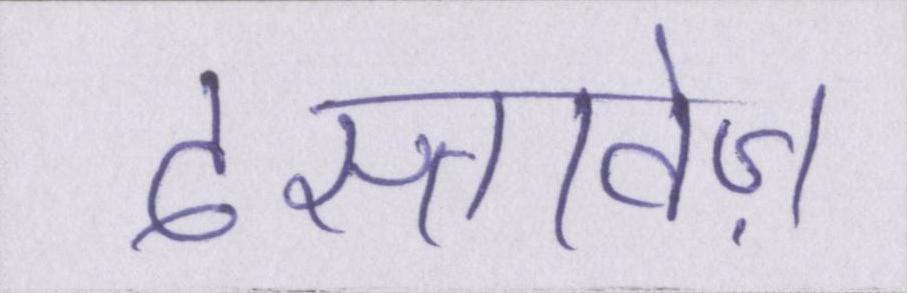 दस्तावेज़